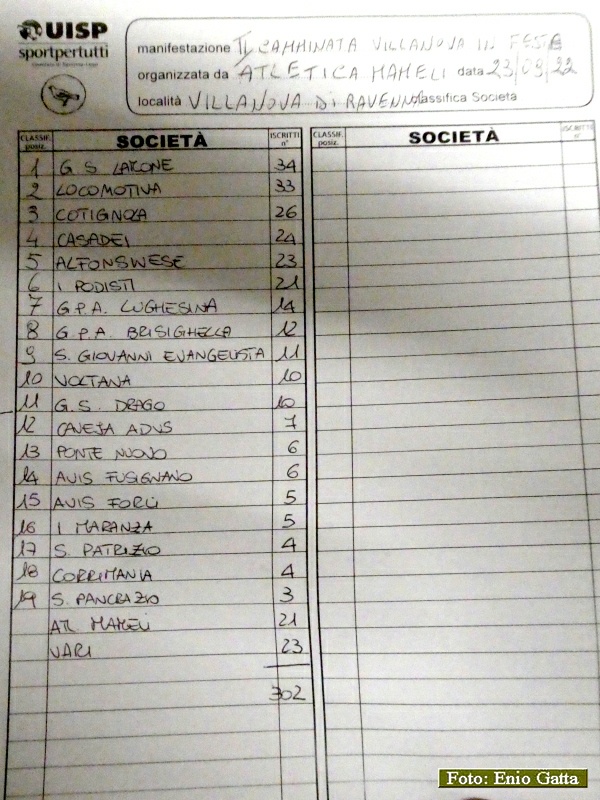 UISP
sportpertutti
manifestazione II CAMMINATA VILLANOVA IN FESTA
organizzata da ATLETICA MAMELI data 23/09/22
località VILLANOVA DI RAVENNA classifica Società
CLASSIF. posiz. SOCIETÀ ISCRITTI n° CLASSIF. posiz. SOCIETÀ ISCRITTI n°
1 G S LAMONE 34
2 LOCOMOTIVA 33
3 COTIGNOLA 26
4 CASADEI 24
5 ALFONSINESE 23
6 I PODISTI 21
7 G.P.A. LUGHESINA 14
8 G.P.A. BRISIGHELLA 12
9 S. GIOVANNI EVANGELISTA 11
10 VOLTANA 10
11 G.S. DRAGO 10
12 CAVEJA ADVS 7
13 PONTE NUOVO 6
14 AVIS FUSIGNANO 6
15 AVIS FORLÌ 5
16 I MARANZA 5
17 S. PATRIZIO 4
18 CORRIMANIA 4
19 S. PANCRAZIO 3
ATL MAMELI 21
VARI 23
302
Foto: Enio Gatta